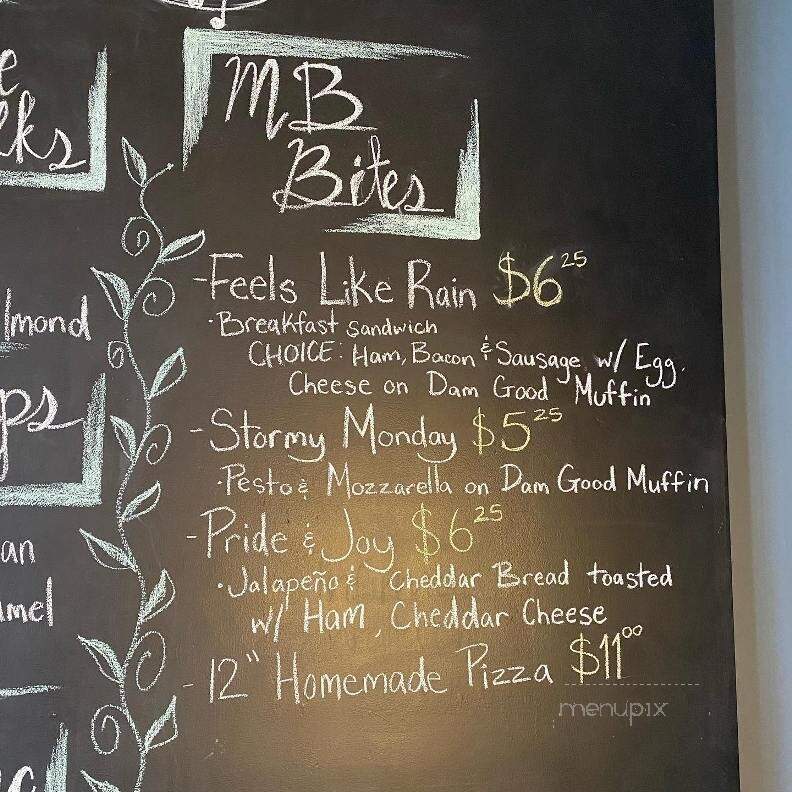 MB
Bites
-Feels Like Rain $6 25
·Breakfast Sandwich
CHOICE: Ham, Bacon & Sausage w/ Egg.
Cheese on Dam Good Muffin
-Stormy Monday $5 25
·Pesto & Mozzarella on Dam Good Muffin
-Pride & Joy $6 25
·Jalapeño & Cheddar Bread toasted
w/ Ham, Cheddar Cheese
-12" Homemade Pizza $11 00
menupix